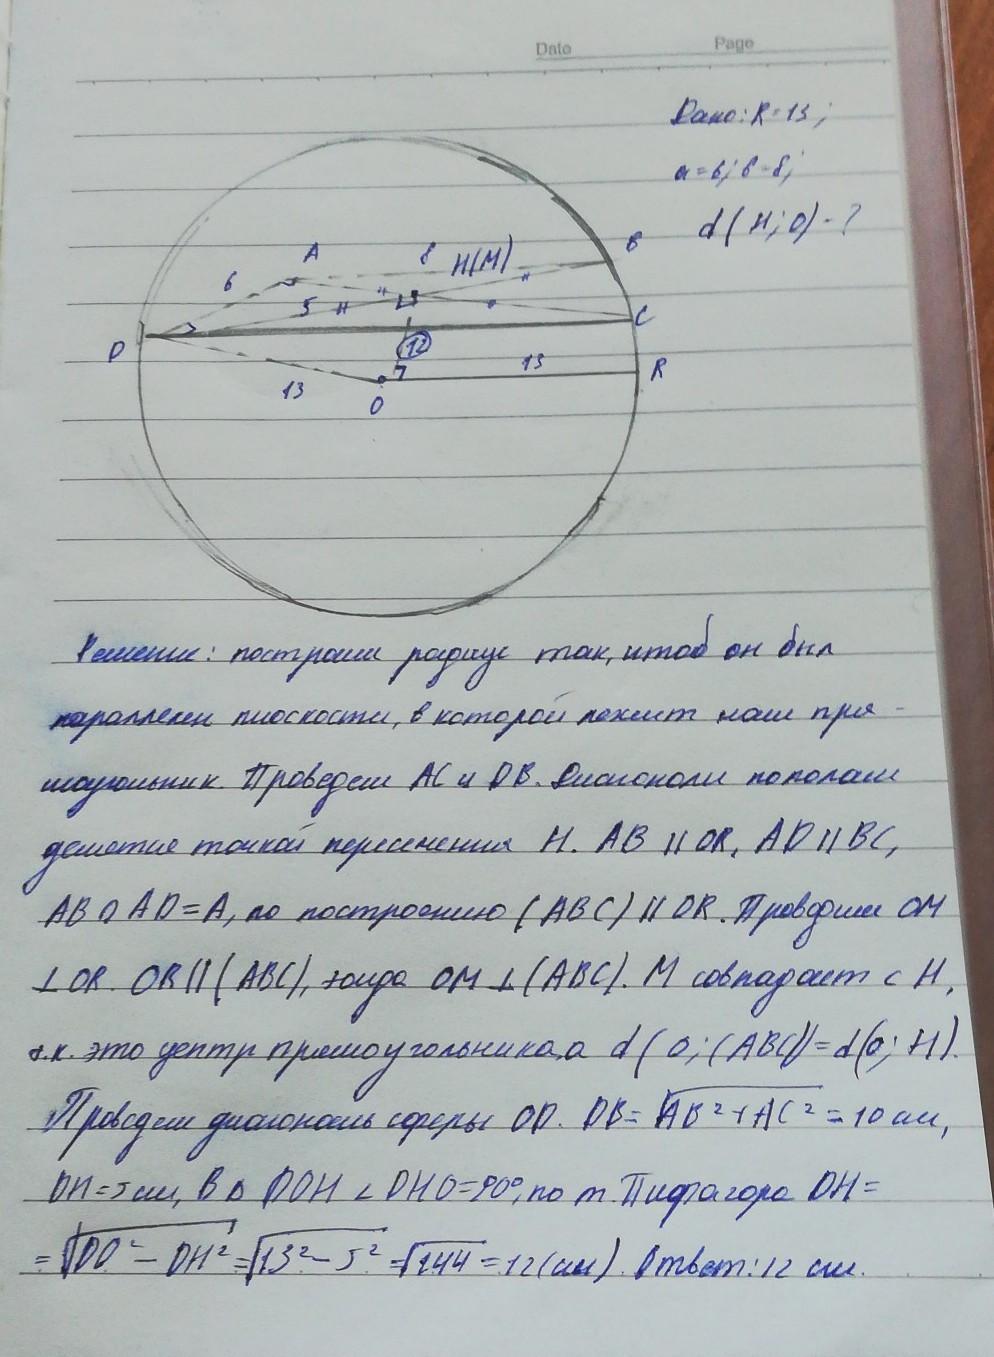 Date Page
Дано: R=13;
a=6; b=8;
d(H; O) - ?
A 8 H(M) B
6 5
D C
12
13 13 R
O
Решение: построим радиус так, чтоб он был
параллелен плоскости, в которой лежит наш пря-
моугольник. Проведем AC и DB. Диагонали пополам
делятся точкой пересечения H. AB || OR, AD || BC,
AB ∩ AD = A, по построению (ABC) || OR. Проведем OM
⊥ OR. OR || (ABC), тогда OM ⊥ (ABC). M совпадает с H,
т.к. это центр прямоугольника, а d(O; (ABC)) = d(O; H).
Проведем диагональ сферы OD. DB = √AB² + AC² = 10 см,
DH = 5 см, В Δ DOH ∠ DHO = 90°, по т. Пифагора OH =
= √DO² - DH² = √13² - 5² = √144 = 12 (см). Ответ: 12 см.